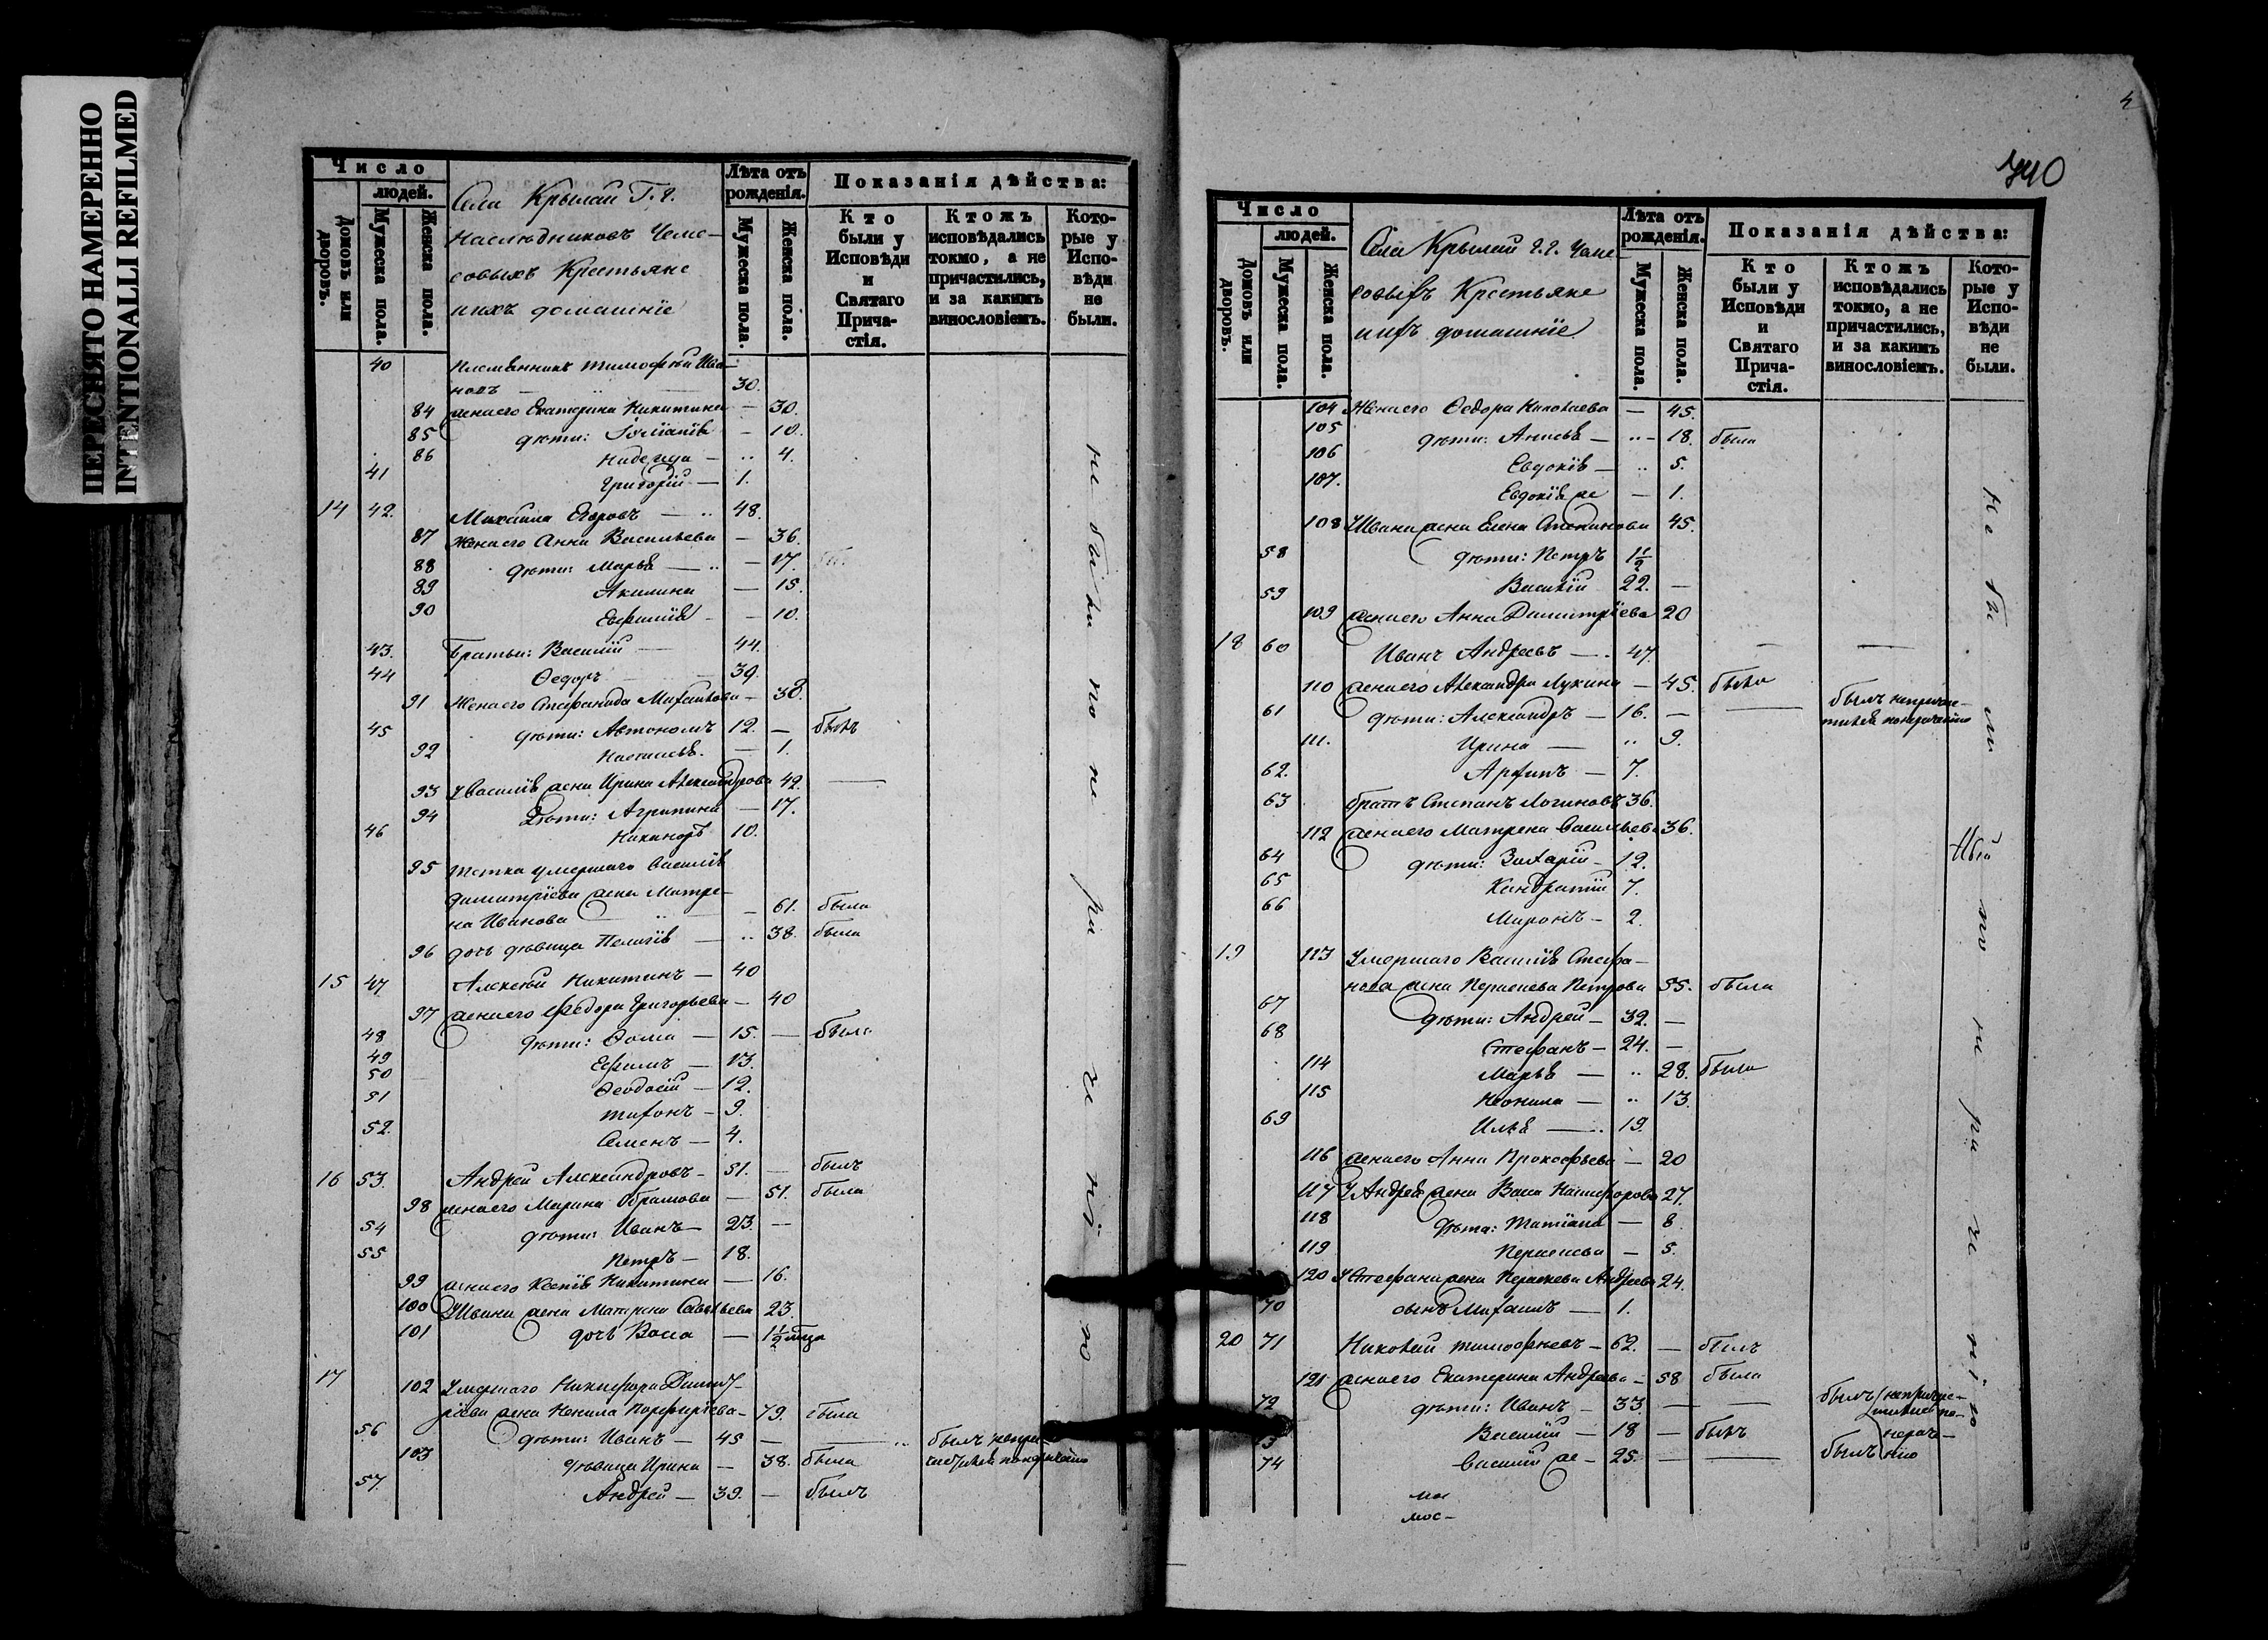 ПЕРЕСНЯТО НАМЕРЕННО
INTENTIONALLI REFILMED
Число
людей.
Домовъ или дворовъ.
Мужеска пола.
Женска пола.
Села Крылай Г. г.
Наслѣдниковъ
совыхъ Крестьяне
ихъ домашніе
Лѣта отъ рожденія.
Мужеска пола.
Женска пола.
Показанія дѣйства:
Кто были у Исповѣди и Святаго Причастія.
Ктожъ исповѣдались токмо, а не причастились, и за какимъ винословіемъ.
Которые у Исповѣди не были.
40 Племянникъ Тимофей Ива-
новъ — 30.
84 жена его Екатерина Никитина — 30.
85 дѣти: — 10.
86 — 4.
41 Григорій — 1.
14 42. Михаила Егоровъ — 48.
87 Жена его Анна Васильева — 36.
88 дѣти: Марья — 17.
89 Акилина — 15.
90 Евфимія — 10.
43. Братья: Василій — 44.
44 Ѳедоръ 39.
91 Жена его Михайлова — 38.
45 дѣти: Автономъ 12. — былъ
92 — 1.
93 У Василія жена Ирина Александрова 42. —
94 Дѣти: Агрипина — 17.
46 Никаноръ 10.
95 Тетка умершаго Василія
Димитріева жена Матре-
на Иванова — 61. была
96 дочь дѣвица Пелагія — 38. была
15 47 Алексѣй Никитинъ — 40
97 жена его Ѳедора Григорьева — 40
48 дѣти: Ѳома — 15. — былъ
49 Ефимъ — 13.
50 Ѳеодосій — 12.
51 Тихонъ — 9.
52. Семенъ — 4.
16 53. Андрей Александровъ — 51. — былъ
98 жена его Марина Абрамова — 51. была
54 дѣти: Иванъ — 23. —
55 Петръ — 18.
99 жена его Ксенія Никитина — 16.
100 У Ивана жена Матрена Савельева 23.
101 дочь Васса — 1½
17 102 Умершаго Никифора Димит-
ріева жена Ненила Порфирьева — 79. была
56 дѣти: Иванъ — 45 — былъ
103 дѣвица Ирина — 38. была
57. Андрей — 39. — былъ
не были по нераченію
4
740
Число
людей.
Домовъ или дворовъ.
Мужеска пола.
Женска пола.
Села Крылай Г. г.
совыхъ Крестьяне
ихъ домашніе
Лѣта отъ рожденія.
Мужеска пола.
Женска пола.
Показанія дѣйства:
Кто были у Исповѣди и Святаго Причастія.
Ктожъ исповѣдались токмо, а не причастились, и за какимъ винословіемъ.
Которые у Исповѣди не были.
104 Жена его Ѳедора Николаева — 45.
105 дѣти: Анисья — 18. была
106 Евдокія — 5.
107. Евдокія же — 1.
108 У Ивана жена Елена 45.
58 дѣти: Петръ 1½
59 Василій 22. —
109 жена его Анна Димитріева 20
18 60 Иванъ Андреевъ — 47. — —
110 жена его Александра Лукина — 45. была
61 дѣти: Александръ — 16. — — былъ
111. Ирина — 9.
62. Архипъ — 7.
63 братъ Степанъ Логиновъ 36.
112 жена его Матрена Васильева 36.
64 дѣти: Захарій — 12.
65 Кандратій 7.
66 Миронъ — 2.
19 113 Умершаго Василія Стефа-
нова жена Парасковья Петрова 55. была
67 дѣти: Андрей — 32. —
68 Стефанъ — 24. —
114 Марья — 28. была
115 Неонила — 13.
69 Илья — 19.
116 жена его Анна Прокофьева — 20
117 У Андрея жена Васса Никифорова 27.
118 дѣти: Татіана — 8.
119 — 5.
120 У Стефана жена Андреева 24.
70 сынъ Михаилъ — 1.
20 71 Николай Тимофеевъ — 62. — былъ
121 жена его Екатерина Андреева — 58 была
72 дѣти: Иванъ — 33. — — былъ
73 Василій — 18 — былъ
74 Василій же — 25. — — былъ
не были по нераченію